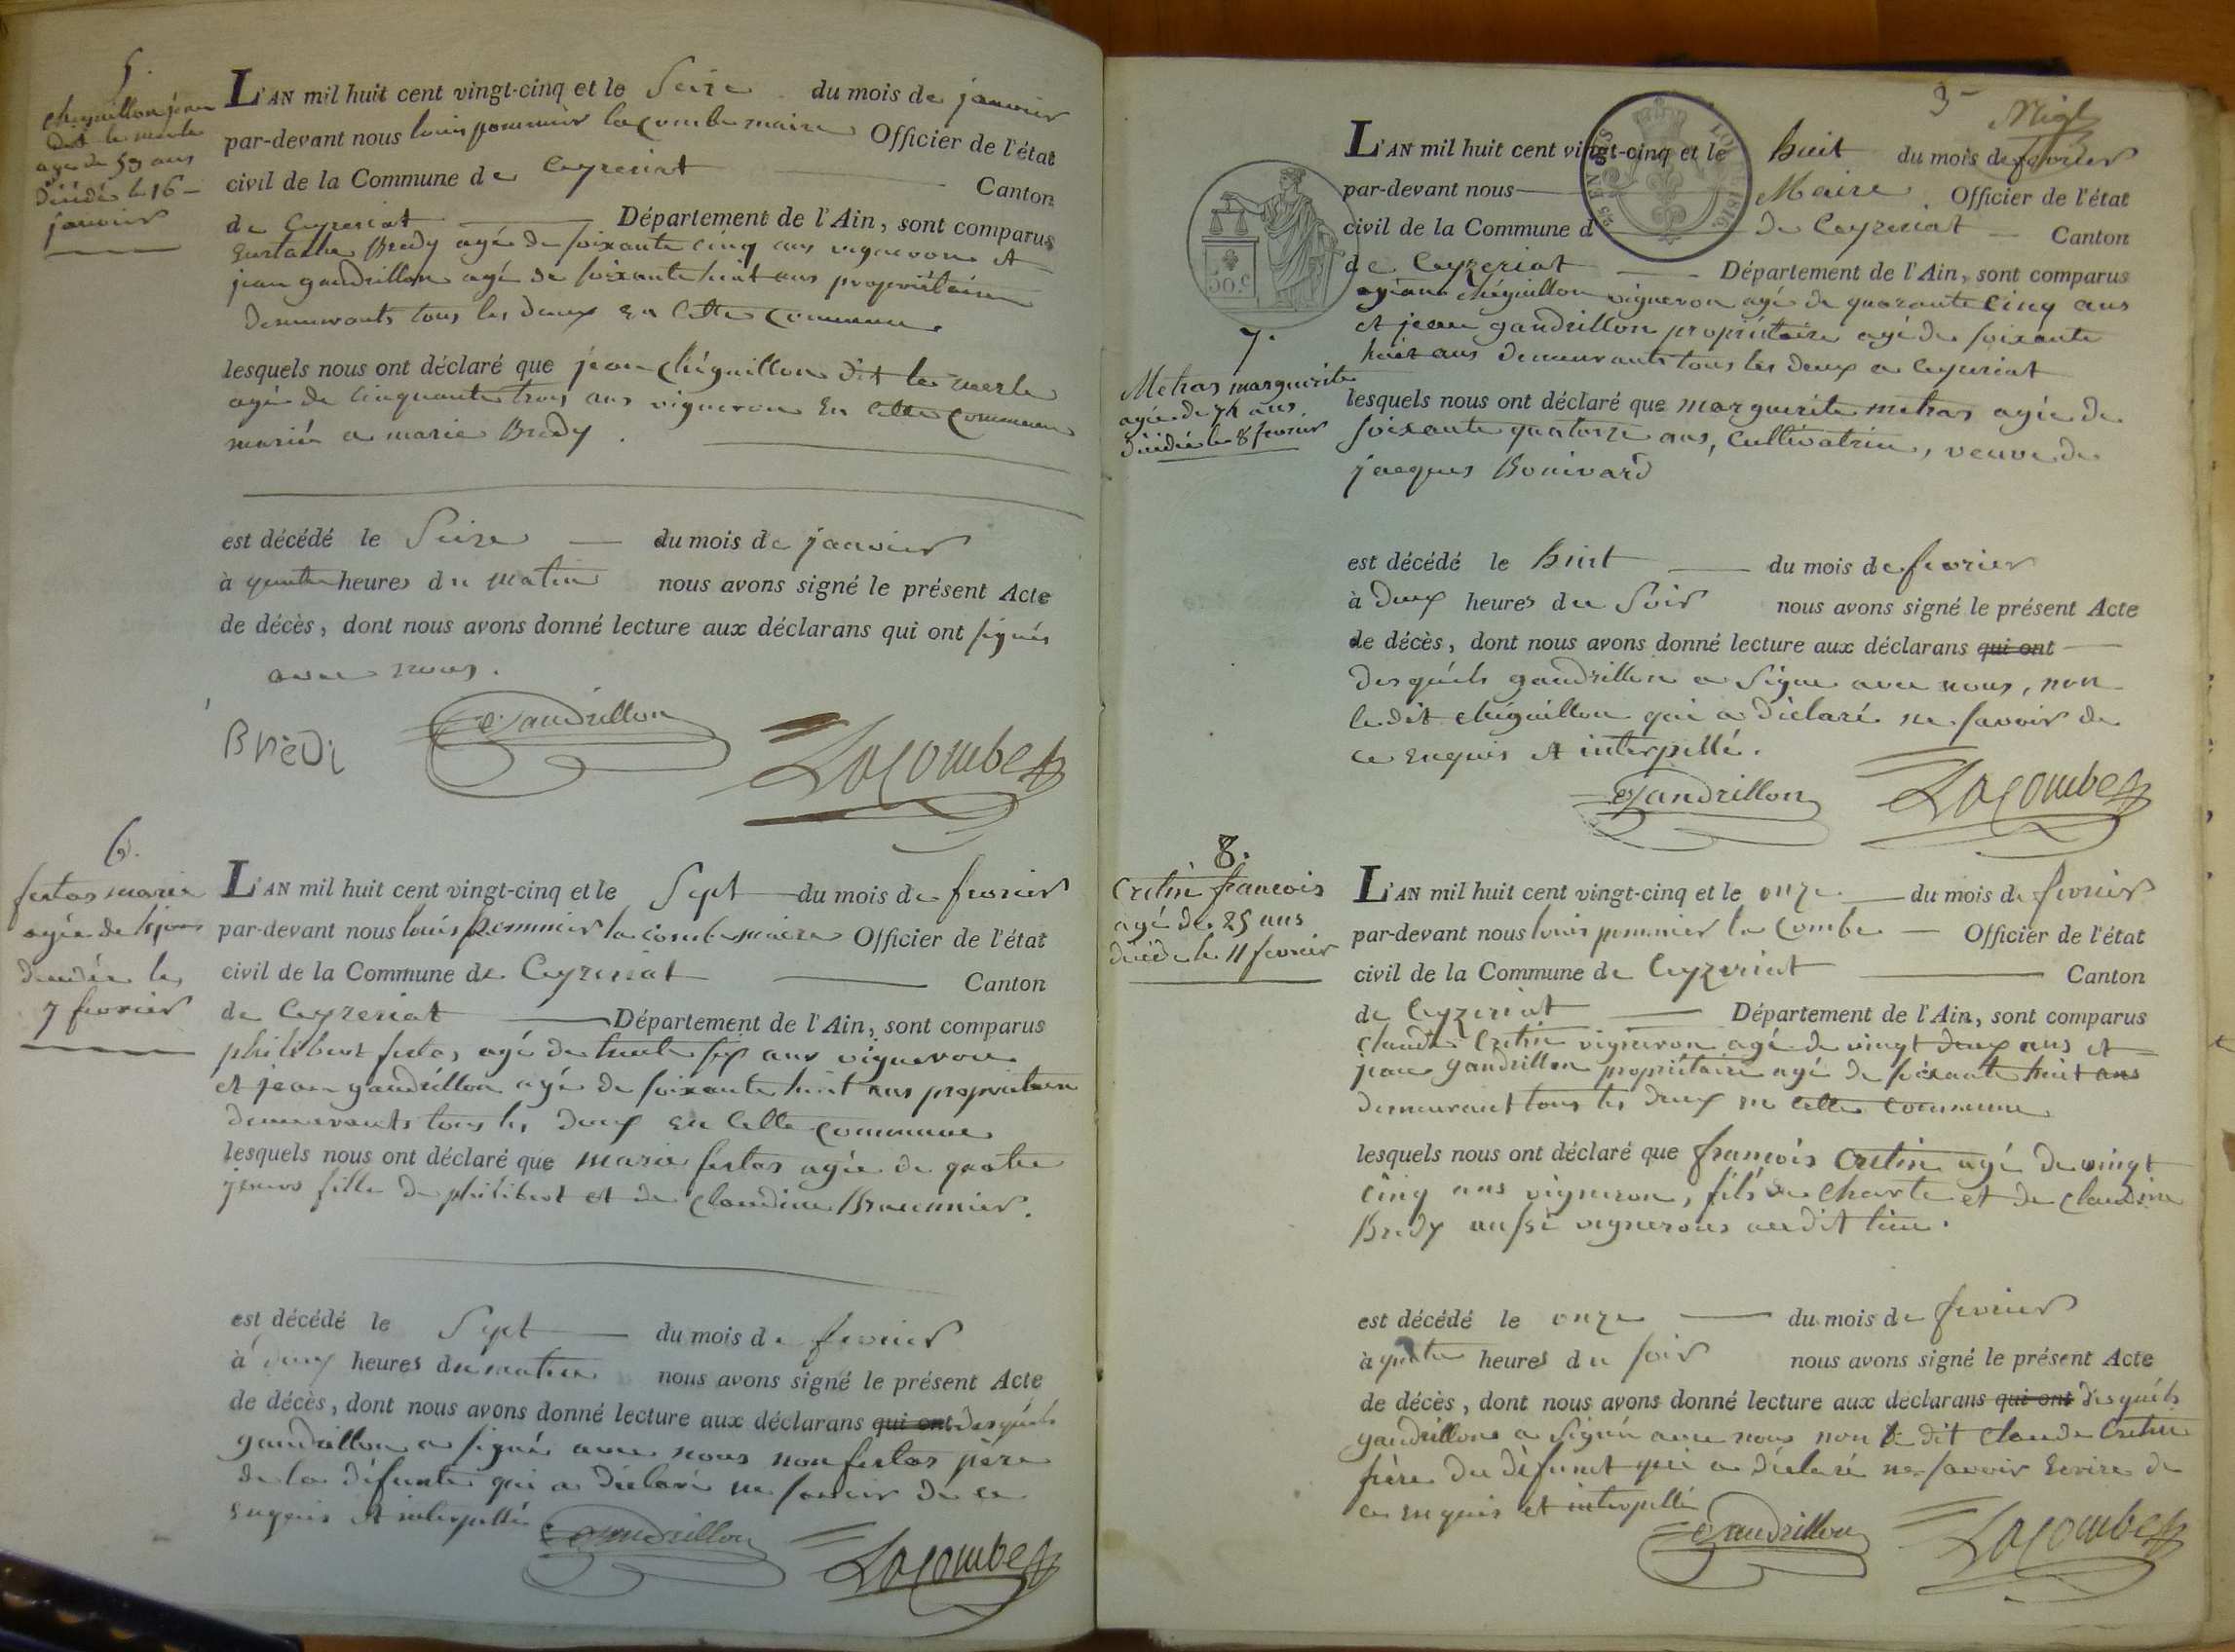 5.
cheguillon jean
dit le merle
agé de 53 ans
décédé le 16
janvier
L'AN mil huit cent vingt-cinq et le Seize du mois de janvier
par-devant nous louis pommier lacombe maire Officier de l'état
civil de la Commune de Ceyzeriat Canton
de Ceyzeriat Département de l'Ain, sont comparus
Eustache Bredy agé de soixante cinq ans vigneron et
jean gandrillon agé de soixante huit ans propriétaire
demeurants tous les deux en cette commune
lesquels nous ont déclaré que jean chéguillon dit le merle
agé de cinquante trois ans vigneron en cette commune
mariée a marie Bredy.
est décédé le Seize du mois de janvier
à quatre heures du matin nous avons signé le présent Acte
de décès, dont nous avons donné lecture aux déclarans qui ont signés
avec nous.
Brèdi Gandrillon Lacombe
6.
fertas marie
agée de 4 jours
décédée le
7 fevrier
L'AN mil huit cent vingt-cinq et le Sept du mois de fevrier
par-devant nous louis pommier la combe maire Officier de l'état
civil de la Commune de Ceyzeriat Canton
de Ceyzeriat Département de l'Ain, sont comparus
philibert fertas agé de trente six ans vigneron
et jean gandrillon agé de soixante huit ans propriétaire
demeurants tous les deux en cette commune
lesquels nous ont déclaré que marie fertas agée de quatre
jours fille de philibert et de claudine
est décédé le Sept du mois de fevrier
à deux heures du matin nous avons signé le présent Acte
de décès, dont nous avons donné lecture aux déclarans qui ont desquels
gandrillon a signé avec nous non fertas père
de la défunte qui a déclaré ne savoir de ce
enquis et interpellé
Gandrillon Lacombe
3
L'AN mil huit cent vingt-cinq et le huit du mois de fevrier
par-devant nous Maire Officier de l'état
civil de la Commune d de Ceyzeriat Canton
de Ceyzeriat Département de l'Ain, sont comparus
chéguillon vigneron agé de quarante cinq ans
et jean gandrillon propriétaire agé de soixante
huit ans demeurants tous les deux a Ceyzeriat
7.
Metras marguerite
agée de 74 ans
décédée le 8 fevrier
lesquels nous ont déclaré que marguerite metras agée de
soixante quatorze ans, cultivatrice, veuve de
jacques Bonivard
est décédé le huit du mois de fevrier
à deux heures du Soir nous avons signé le présent Acte
de décès, dont nous avons donné lecture aux déclarans qui ont
desquels gandrillon a signé avec nous, non
le dit chéguillon qui a déclaré ne savoir de
ce enquis et interpellé.
Gandrillon Lacombe
8.
Cretin francois
agé de 25 ans
décédé le 11 fevrier
L'AN mil huit cent vingt-cinq et le onze du mois de fevrier
par-devant nous louis pommier la Combe Officier de l'état
civil de la Commune de Ceyzeriat Canton
de Ceyzeriat Département de l'Ain, sont comparus
claude Cretin vigneron agé de vingt deux ans et
jean gandrillon propriétaire agé de soixante huit ans
demeurant tous les deux en cette commune
lesquels nous ont déclaré que françois Cretin agé de vingt
cinq ans vigneron, fils de Charle et de claudine
Bredy aussi vignerons audit lieu.
est décédé le onze du mois de fevrier
à quatre heures du soir nous avons signé le présent Acte
de décès, dont nous avons donné lecture aux déclarans qui ont desquels
gandrillon a signé avec nous non le dit claude Cretin
frère du défunct qui a déclaré ne savoir Ecrire de
ce enquis et interpellé
Gandrillon Lacombe